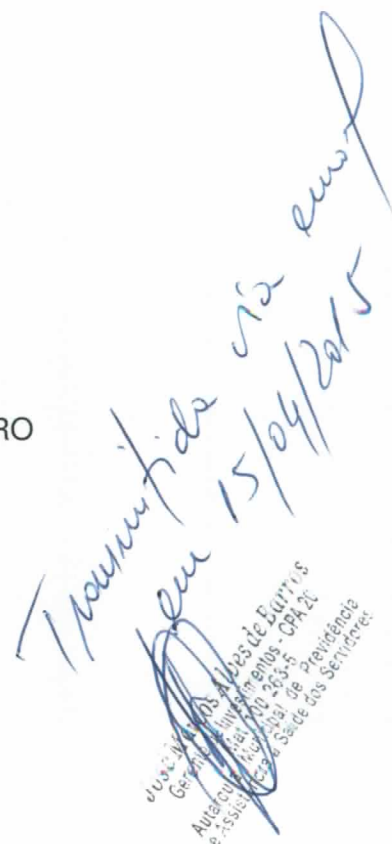 RO
Transmitida via email
em 15/04/2015
José Alves de Barros
Gerente Investimentos - CPA 20
263-5
Autarquia Municipal de Previdência
e Assistência à Saúde dos Servidores